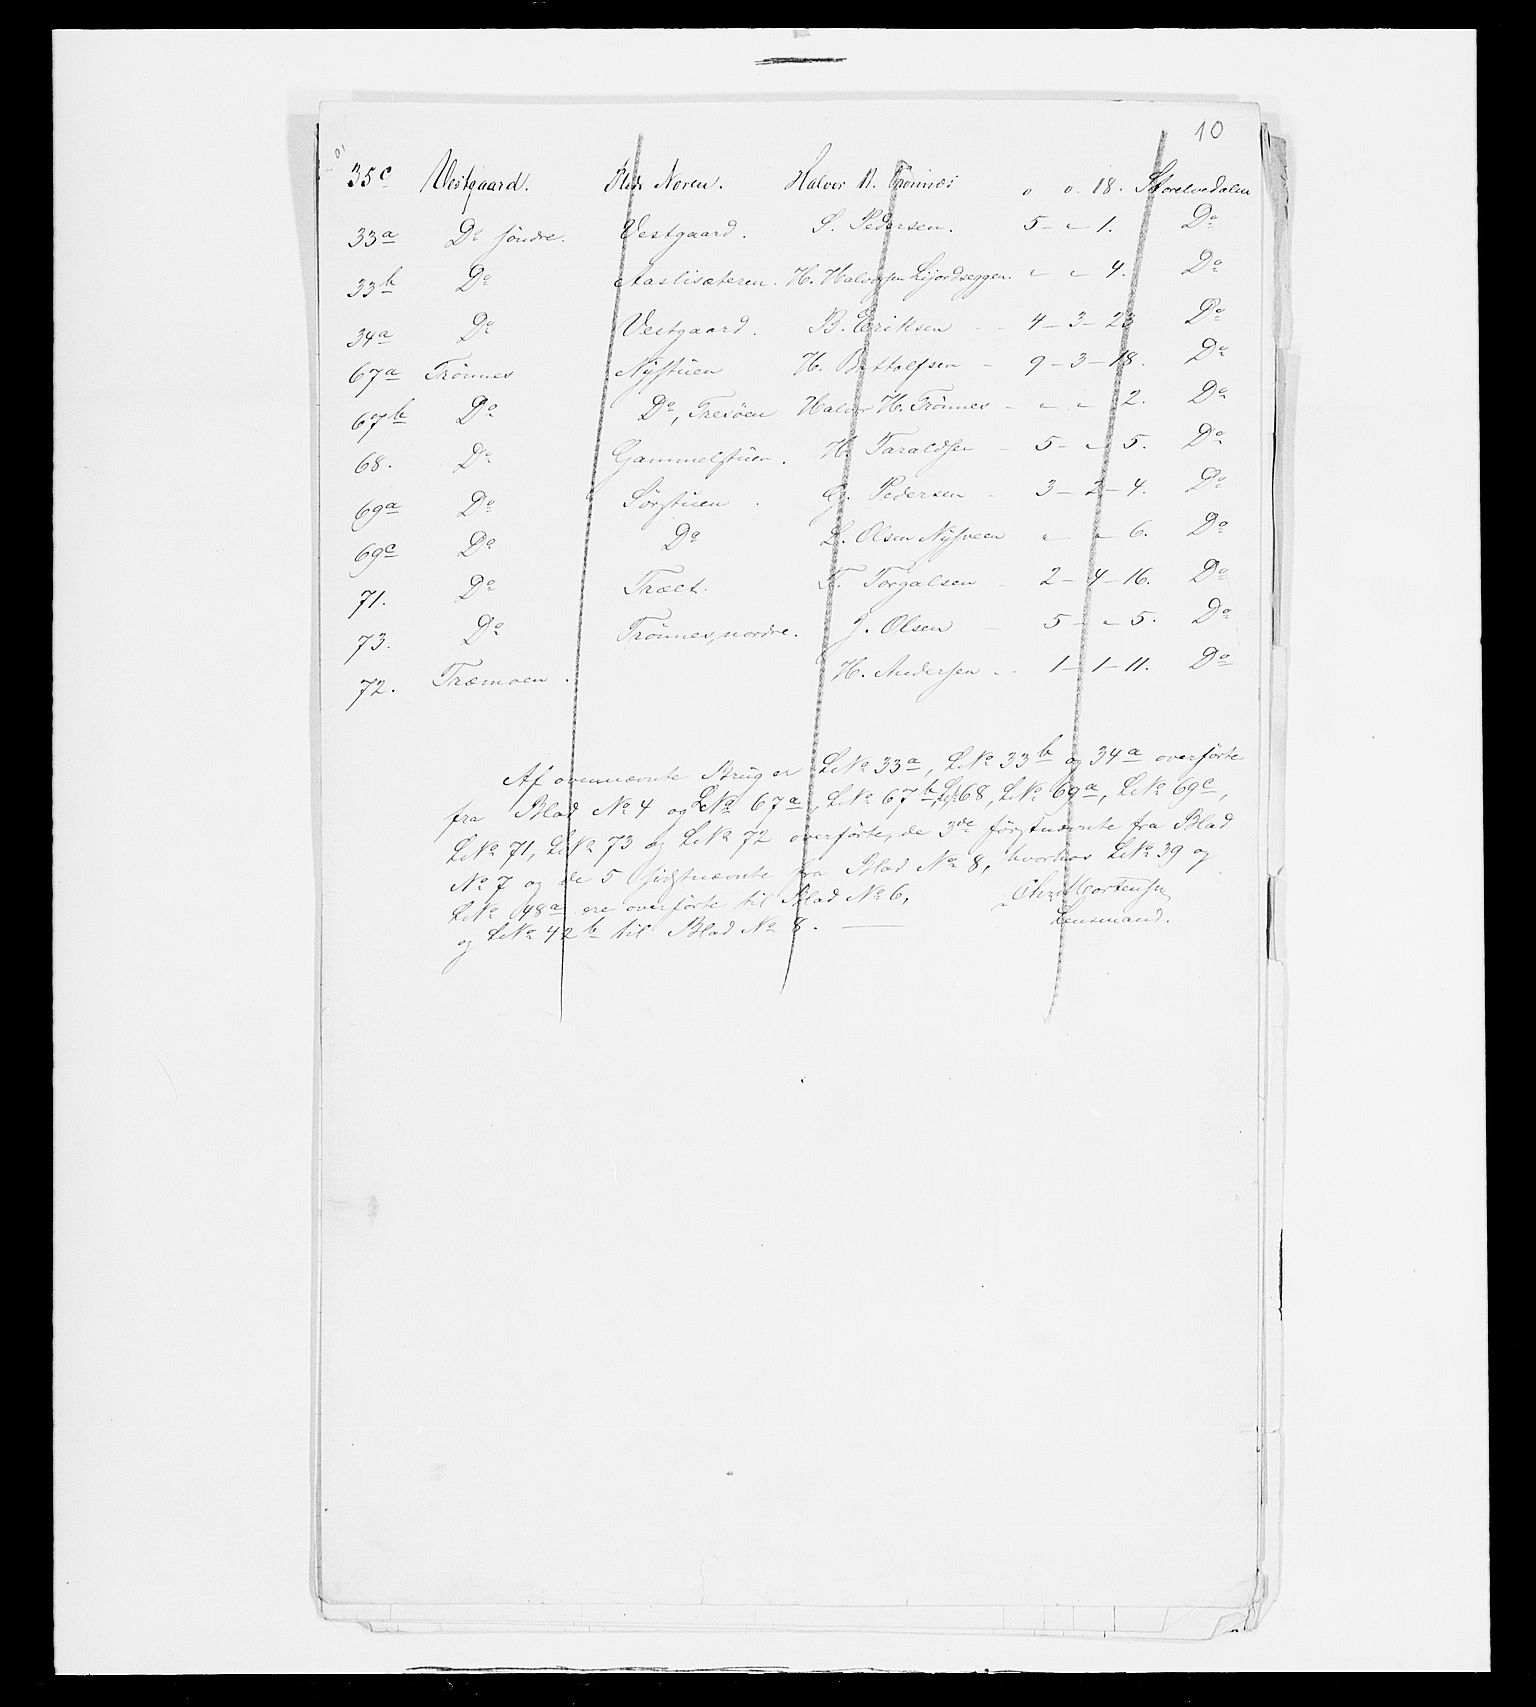 10
35c Vestgaard. Noren. Halvor H. Trønnes o o. 18. Storelvedalen
33a Do søndre. Vestgaard. S. Pedersen. 5 - " 1. Do
33b Do Aaslisæteren. H. Halvorsen Lijordseggen. " " 4. Do
34a Do Vestgaard. B. Eriksen - 4 - 3 - 23 Do
67a Trønnes Nystuen H. Bottolfsen - 9 - 3 - 18. Do
67b Do Do, Halvor H. Trønnes - " " 2. Do
68. Do Gammelstuen. H. Taraldsen - 5 - " 5. Do
69a Do Sørstuen. G. Pedersen - 3 - 2 - 4. Do
69c Do Do L. Olsen Nysveen " " 6. Do
71. Do Træet. T. Torgalsen - 2 - 4 - 16. Do
73. Do Trønnes, nordre. J. Olsen - 5 - " 5. Do
72. Træmoen. H. Andersen - 1 - 1 - 11. Do
Af ovennævnte Brug er LNo 33a, LNo 33b og 34a overførte
fra Blad No 4 og LNo 67a, LNo 67b, LNo 68, LNo 69a, LNo 69c,
LNo 71, LNo 73 og LNo 72 overførte, de 3de førstnævnte fra Blad
No 7 og de 5 sidstnævnte fra Blad No 8, hvorhos LNo 39 og
LNo 48a ere overførte til Blad No 6, Chr. Mortensen
og LNo 42b til Blad No 8. Lensmand.